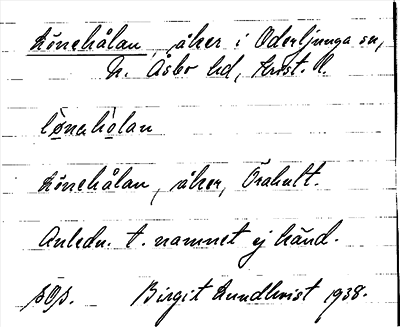 Lönehålan, åker i Oderljunga sn,
N. Åsbo hd, Krist. l.
lònehòlan
Lönehålan, åker, Örahult.
Anledn. t. namnet ej känd.
Birgit Lundkvist 1938.